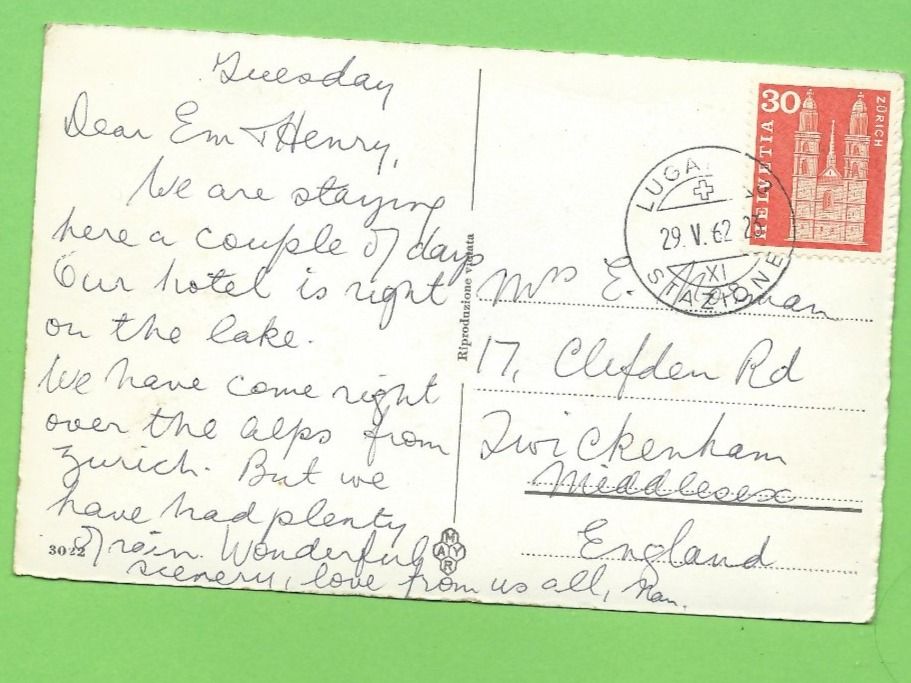 Tuesday
Dear Em & Henry,
We are staying
here a couple of days
Our hotel is right
on the lake.
We have come right
over the alps from
Zurich. But we
have had plenty
of rain. Wonderful
scenery, love from us all, Nan.
3022
MAYR
Riproduzione vietata
30
HELVETIA
ZÜRICH
LUGANO
29. V. 62 23
XI
STAZIONE
Mrs E.
17, Clifden Rd
Twickenham
Middlesex
England